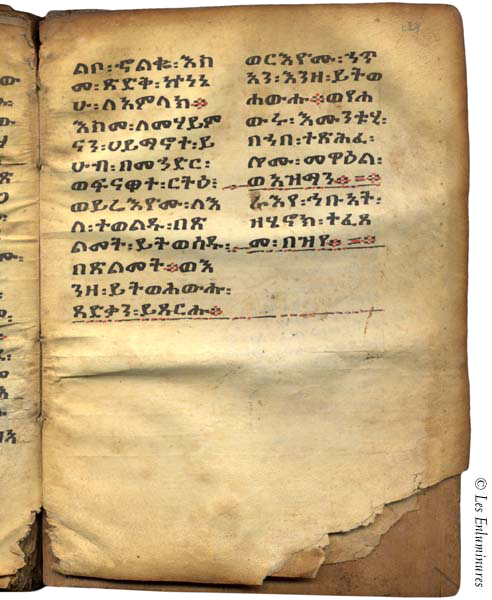 ልቦ፡ኆልቈ፡እስ
መ፡ጽድቅ፡ኵነኔ
ሁ፡ለአምላክ።
እስመ፡ለመሃይም
ናን፡ሃይማኖተ፡ይ
ሁብ፡በማኅደር፡
ወፍናዋተ፡ርትዕ፡
ወይሬእዮሙ፡ለእ
ለ፡ተወልዱ፡በጽ
ልመት፡ይትወሰዱ፡
በጽልመት።ወእ
ንዘ፡ይትወሐውሑ፡
ጻድቃን፡ይጸርሑ።
ወርእዮሙ፡ኃጥ
አን፡እንዘ፡ይትወ
ሐውሑ።ወየሐ
ውሩ፡እሙንቱሂ፡
በኀበ፡ተጽሕፈ፡
ሎሙ፡መዋዕል፡
ወአዝማን።
ራእየ፡ኀቡኣት፡
ዘሄኖክ፡ተፈጸ
መ፡በዝየ።
© Les Enluminures